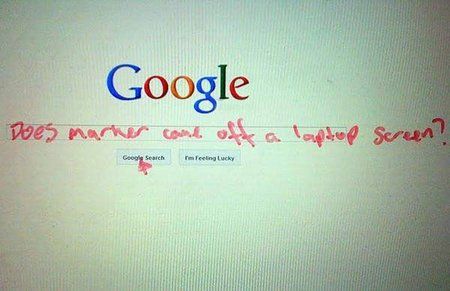 Google
Does marker come off a laptop screen?
Google Search I'm Feeling Lucky